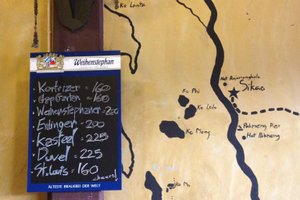 Weihenstephan
Korlvizer = 160
Hopfgarten = 160
Weihenstephaner = 200
Erdinger = 200
Kasteel = 225
Duvel = 225
St. Louis = 160
cheers!
ÄLTESTE BRAUEREI DER WELT
Ko Lanta
Sikao
Ko Phi
Ko Lola
Ko Mong
Pakmeng Pier
Hat Pakmeng
Ko Mu